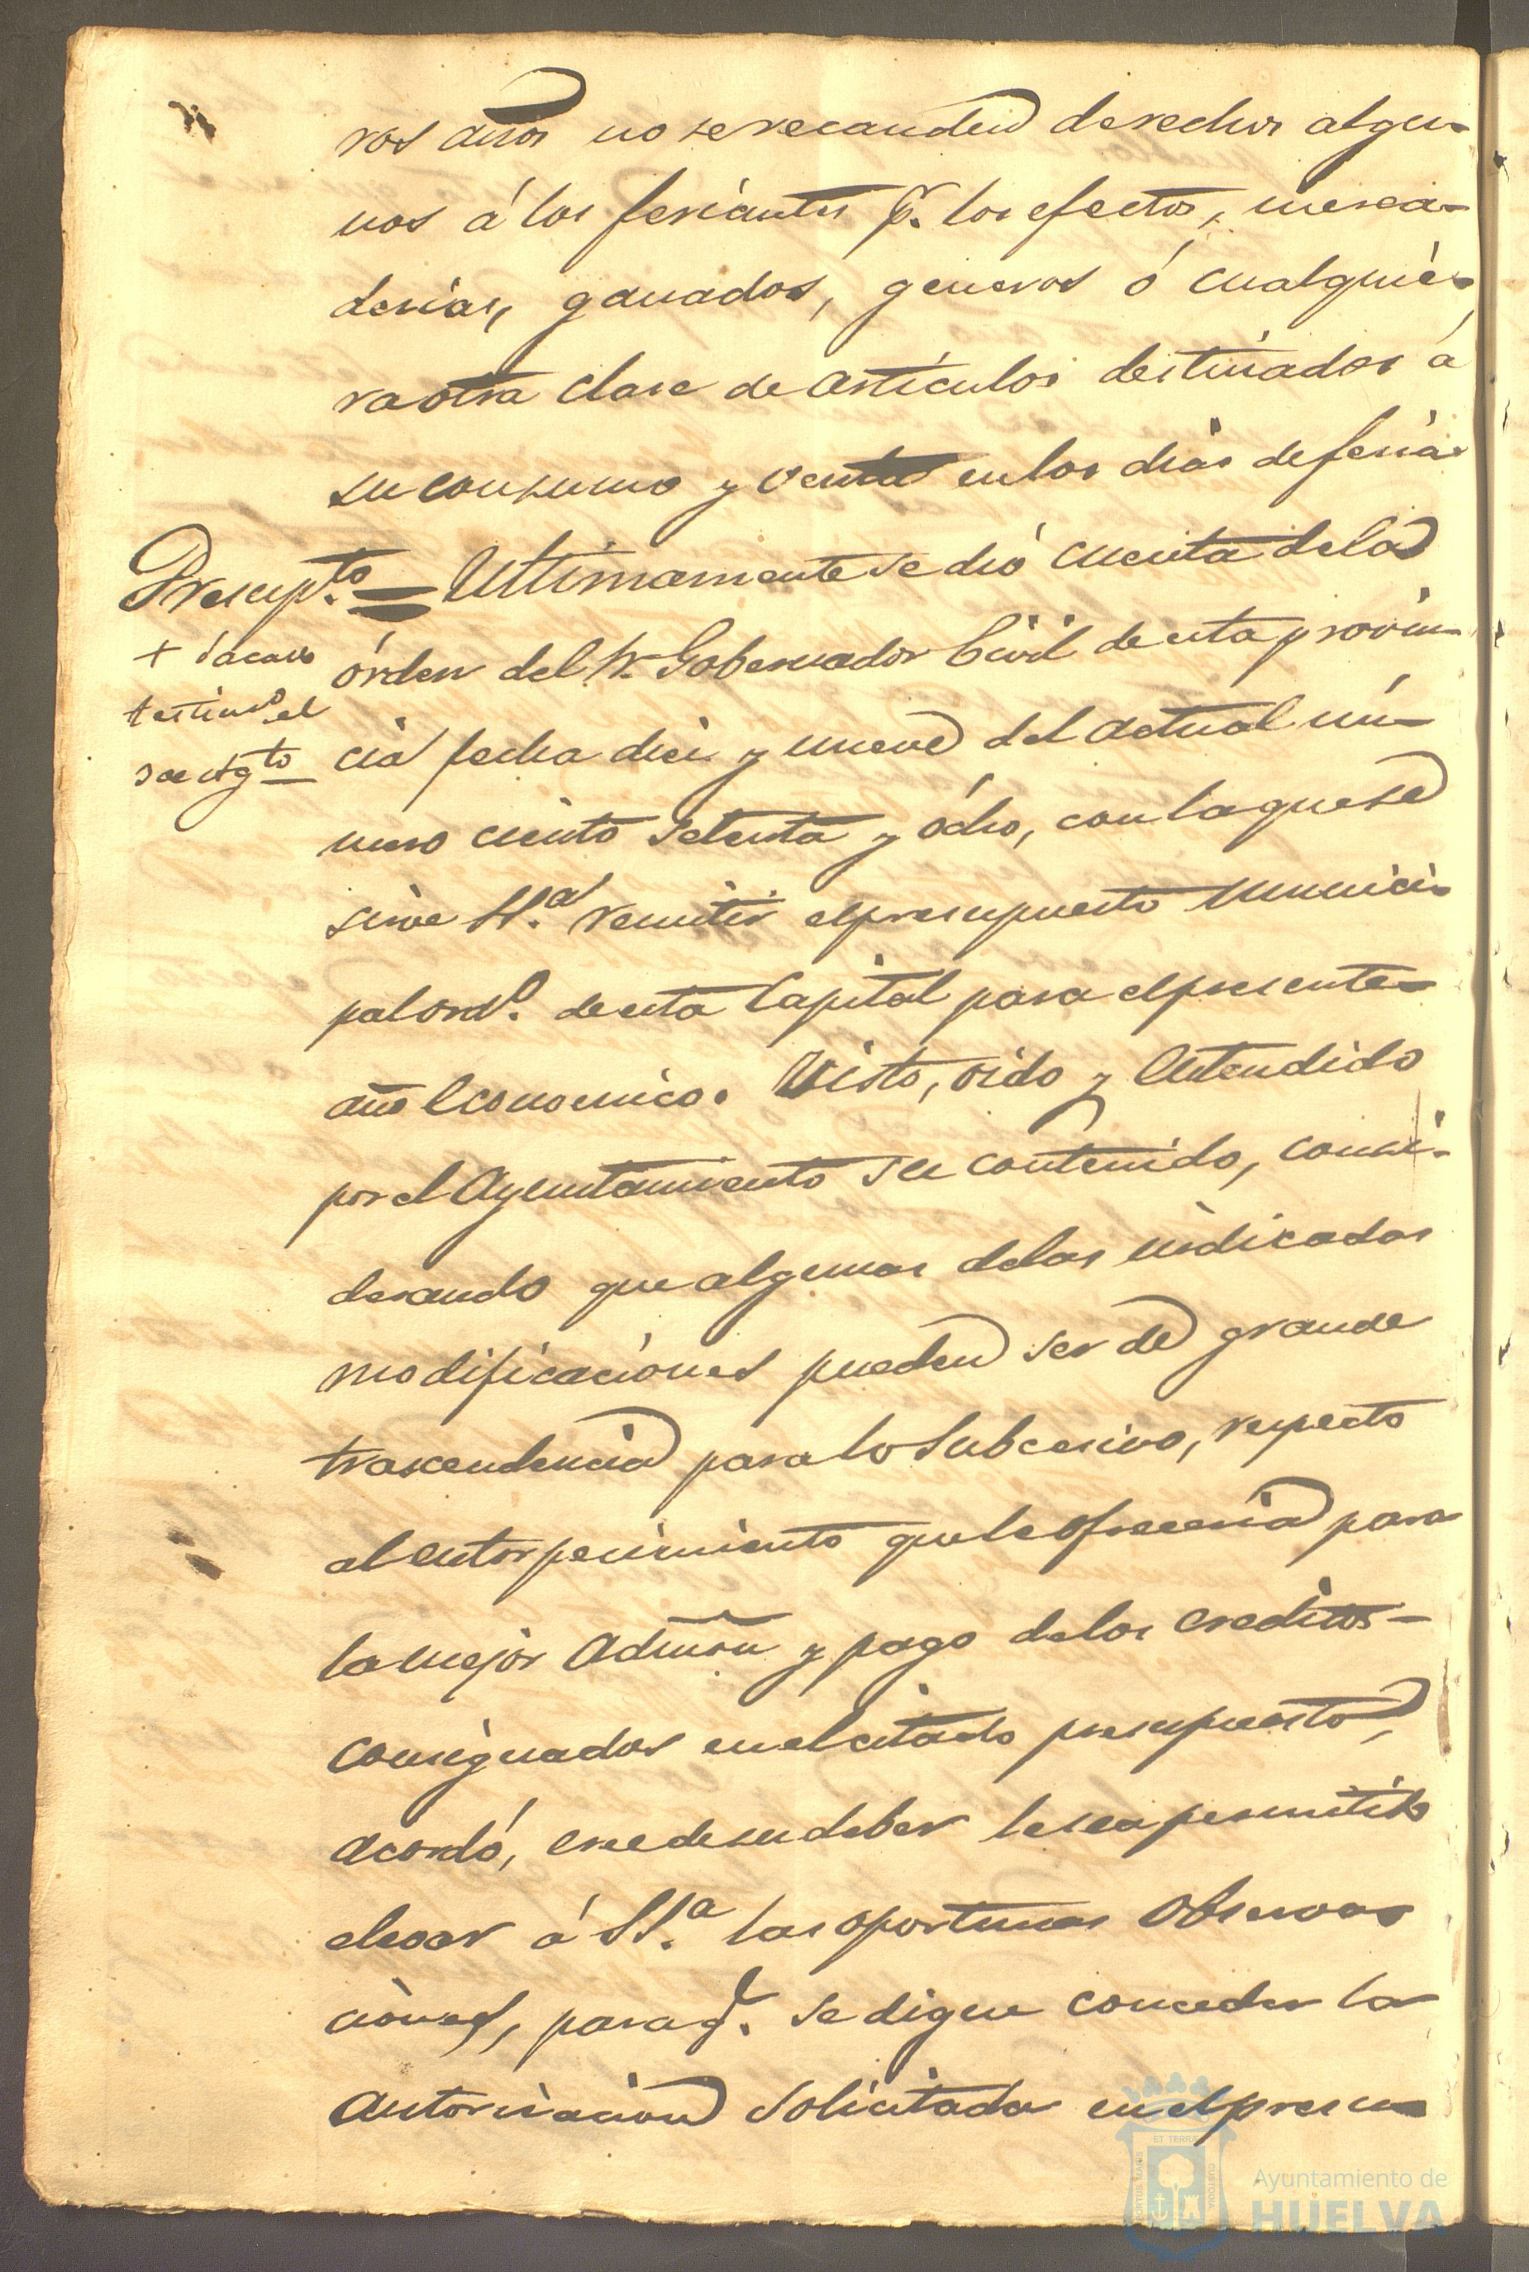 ros años no se recauden derechos algu-
nos á los feriantes pr. los efectos, merca-
derias, ganados, generos ó cualquie-
ra otra clase de articulos destinados á
su consumo y venta en los dias de feria.
Presup.to = Ultimamente se dió cuenta de la
órden del Sr. Gobernador Civil de esta provin-
cia fecha diez y nueve del actual nú-
mero ciento setenta y ócho, con la que se
sirve S.S.a remitir el presupuesto munici-
pal ord.o de esta Capital para el presente
año Economico. Visto, oido y Entendido
por el Ayuntamiento su contenido, consi-
derando que algunas de las indicadas
modificaciones pueden ser de grande
trascendencia para lo Subcesivo, respecto
al entorpecimiento que le ofreceria para
la mejor Admon y pago de los creditos
consignados en el citado presupuesto,
acordó, cree de su deber le sea permitido
elevar á S.S.a las oportunas Observa-
ciones, para q.e se digne conceder la
autorizacion solicitada en el presu-
+ Sacado
testimo. el
de Agto
ET TERRÆ
Ayuntamiento de
HUELVA